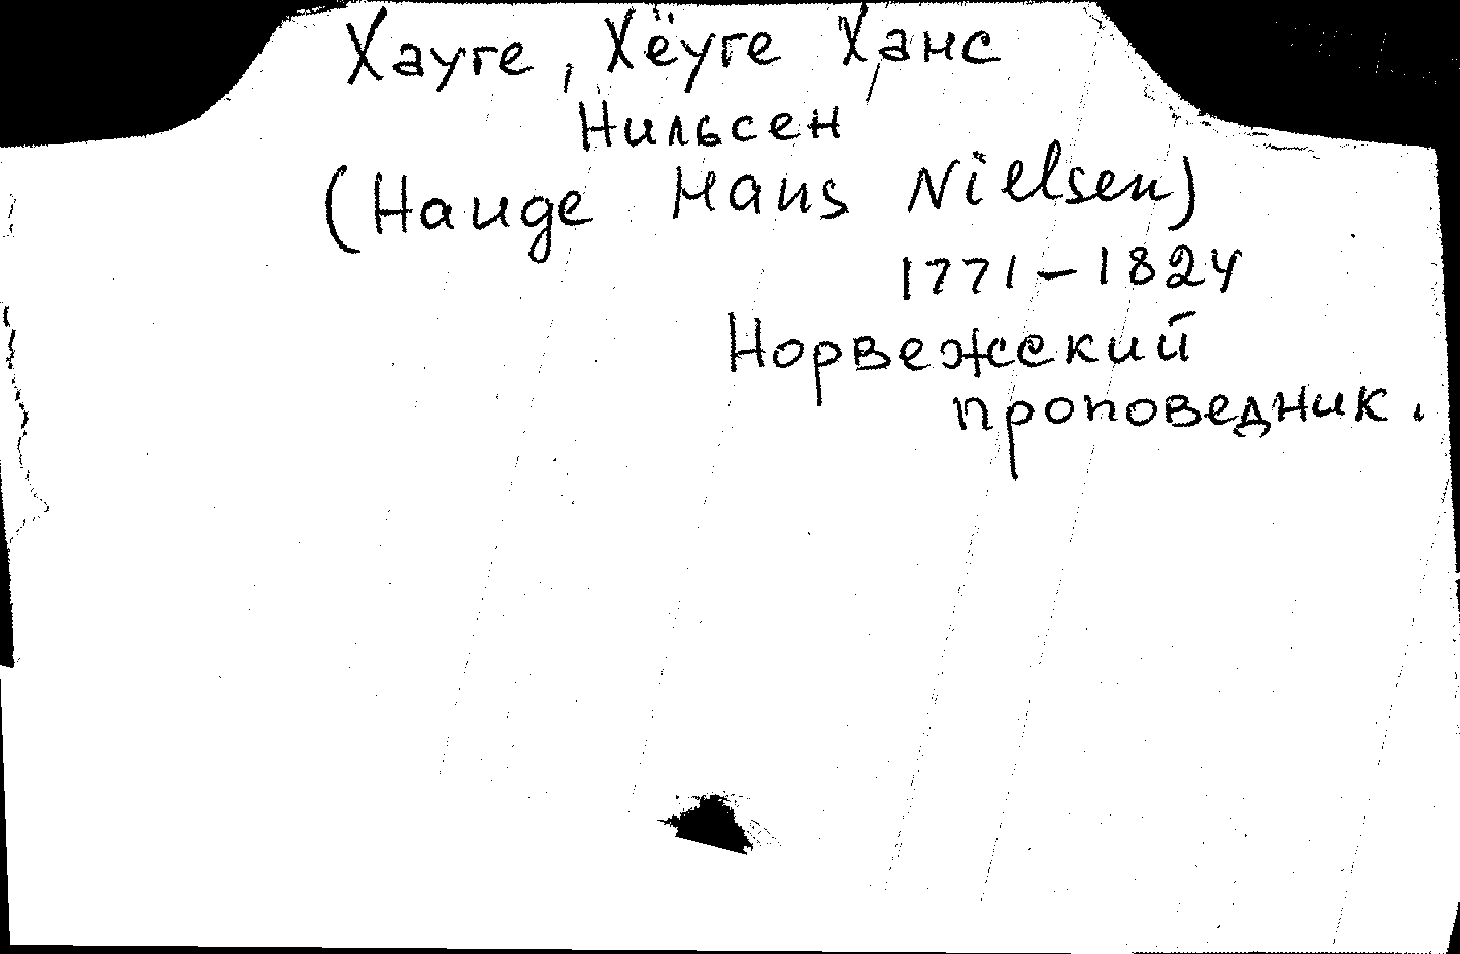 Хауге, Хёуге Ханс
Нильсен
(Hauge Hans Nielsen)
1771-1824
Норвежский
проповедник.